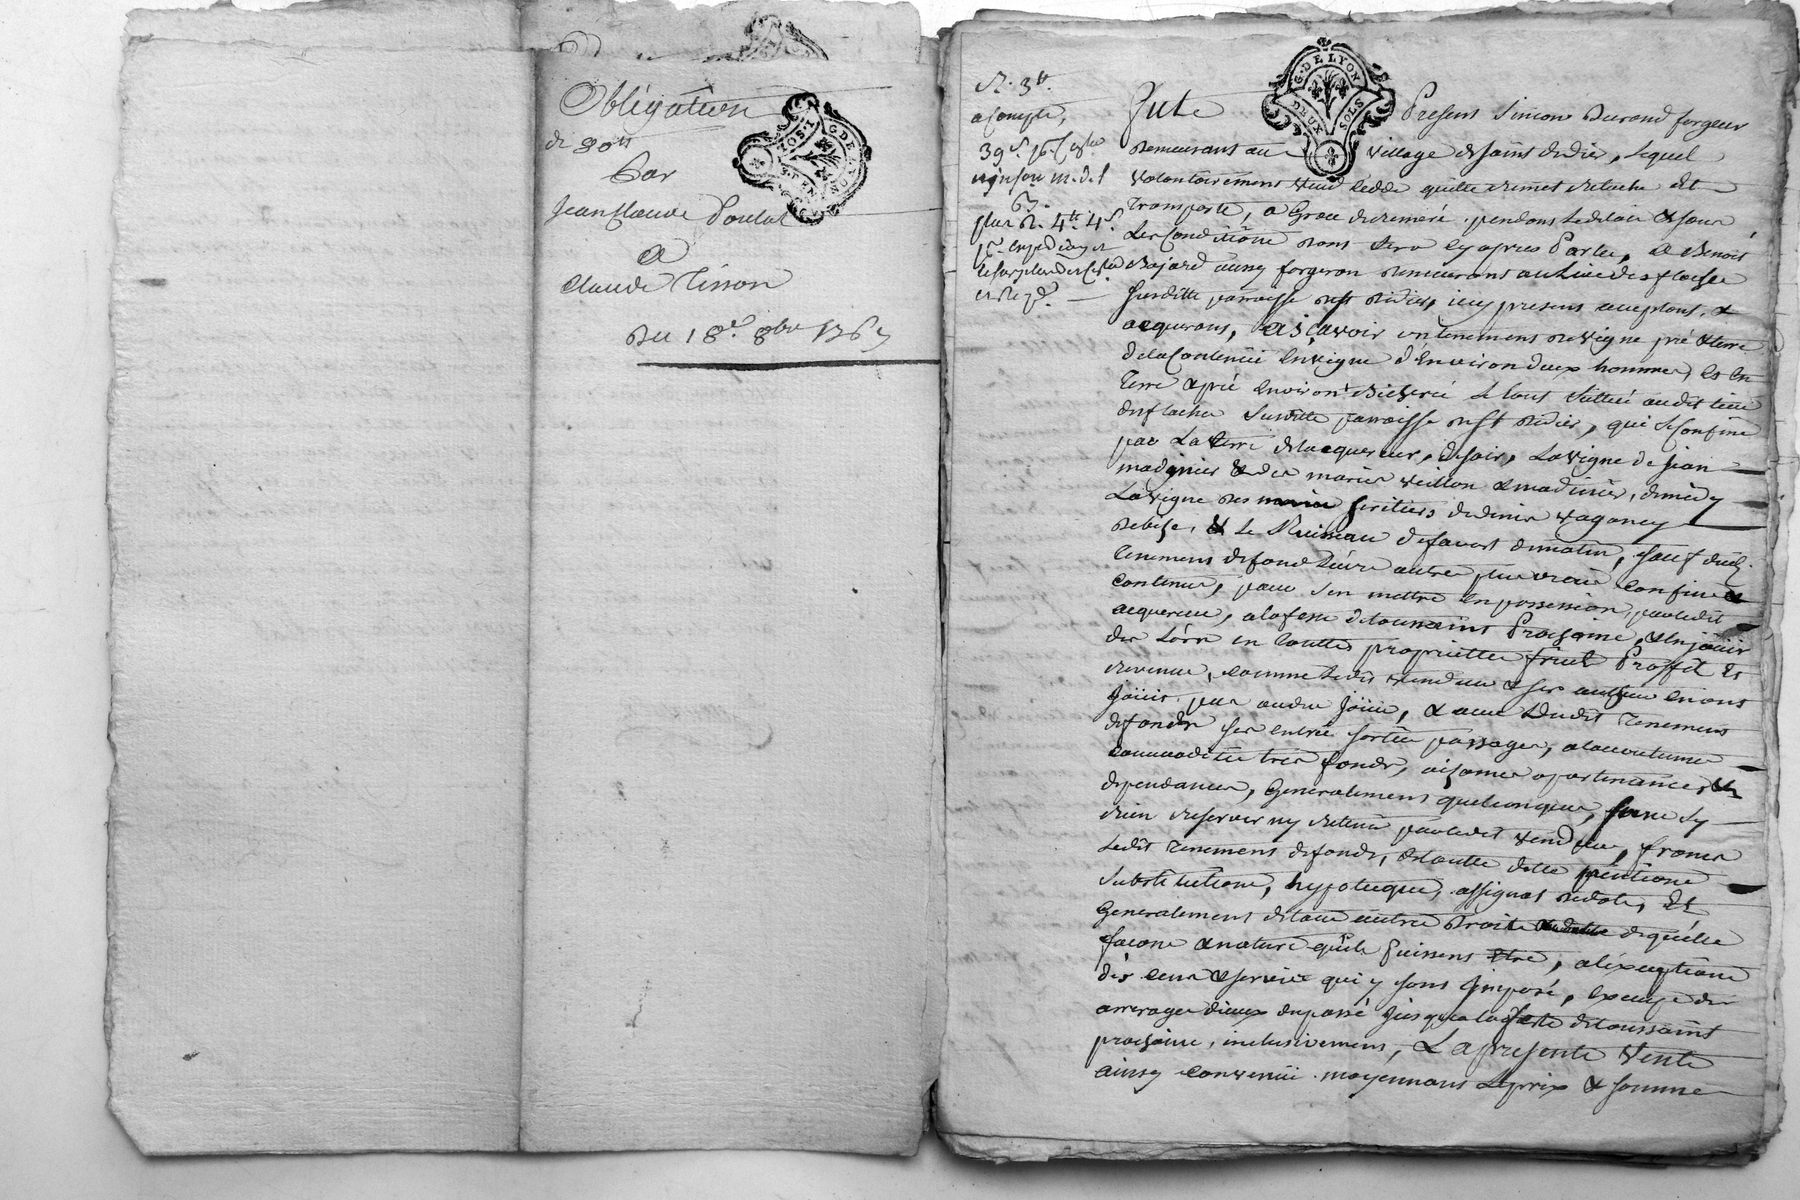 Obligation
de 30ᵗᵗ
Par
Jean Claude Poulat
A
Claude Tisson
Du 18ᵉ 8bre 1767
G·DE LYON
DEUX SOLS
R. 3ᵗᵗ.
a Compte,
plus R. 4ᵗᵗ 4ˢ
Fut Present Simon Durand forgeur
demeurant au village de saint didier, Lequel
volontairement vend cedde quitte remet relache et
transporte, a Grace de remeré pendant le delai & sous
Les Conditions dont sera cy apres Parlé, a Benoit
Bajard aussy forgeron demeurant au Lieu des flaches
susditte parroisse de st didier, icy present acceptant, &
acquerant, asçavoir un tenement de vigne pré & terre
de la Contenüe en vigne d'environ deux hommes, et en
terre & pré environ Bicherée le tout situé audit Lieu
des flaches susditte parroisse de st didier, qui se confine
par La terre de lacquereur, de soir, La vigne de jean
madinier & de marie veillon & madinier, de midy
La vigne des heritiers de denis vaganey
de bise, & Le Ruisseau de favert de matin, sauf dud.
tenement de fond d'autre plus vrais confins &
contenue, pour s'en mettre en possession, par ledit
acquereur, a la feste de toussaint Prochaine, & en jouir
des Lors en toutte proprietté fruit Proffit et
revenue, comme ledit vendeur & ses autheurs en ont
joüit pour audeu joüir, & avec Dudit tenement
de fonds ses entrée sortie passages, alaccoutumé
commodités tres fonds, aisances apartenances &
dependances, Generalement quelconques, sans sy
rien reserver ny retenir par ledit vendeur, francs
Ledit tenement de fonds, de toutte dette pentions
substitutions, hypoteques, assignat de dote, Et
Generalement de tous autres droits de quelle
facons & nature qu'ils Puissent être, a l'exception
des cens & service qui y sont imposé, Exempt des
arrerages d'iceux du passé jusqua la feste de toussaint
prochaine, inclusivement, La presente Vente
ainsy convenüe moyennant Le prix & somme